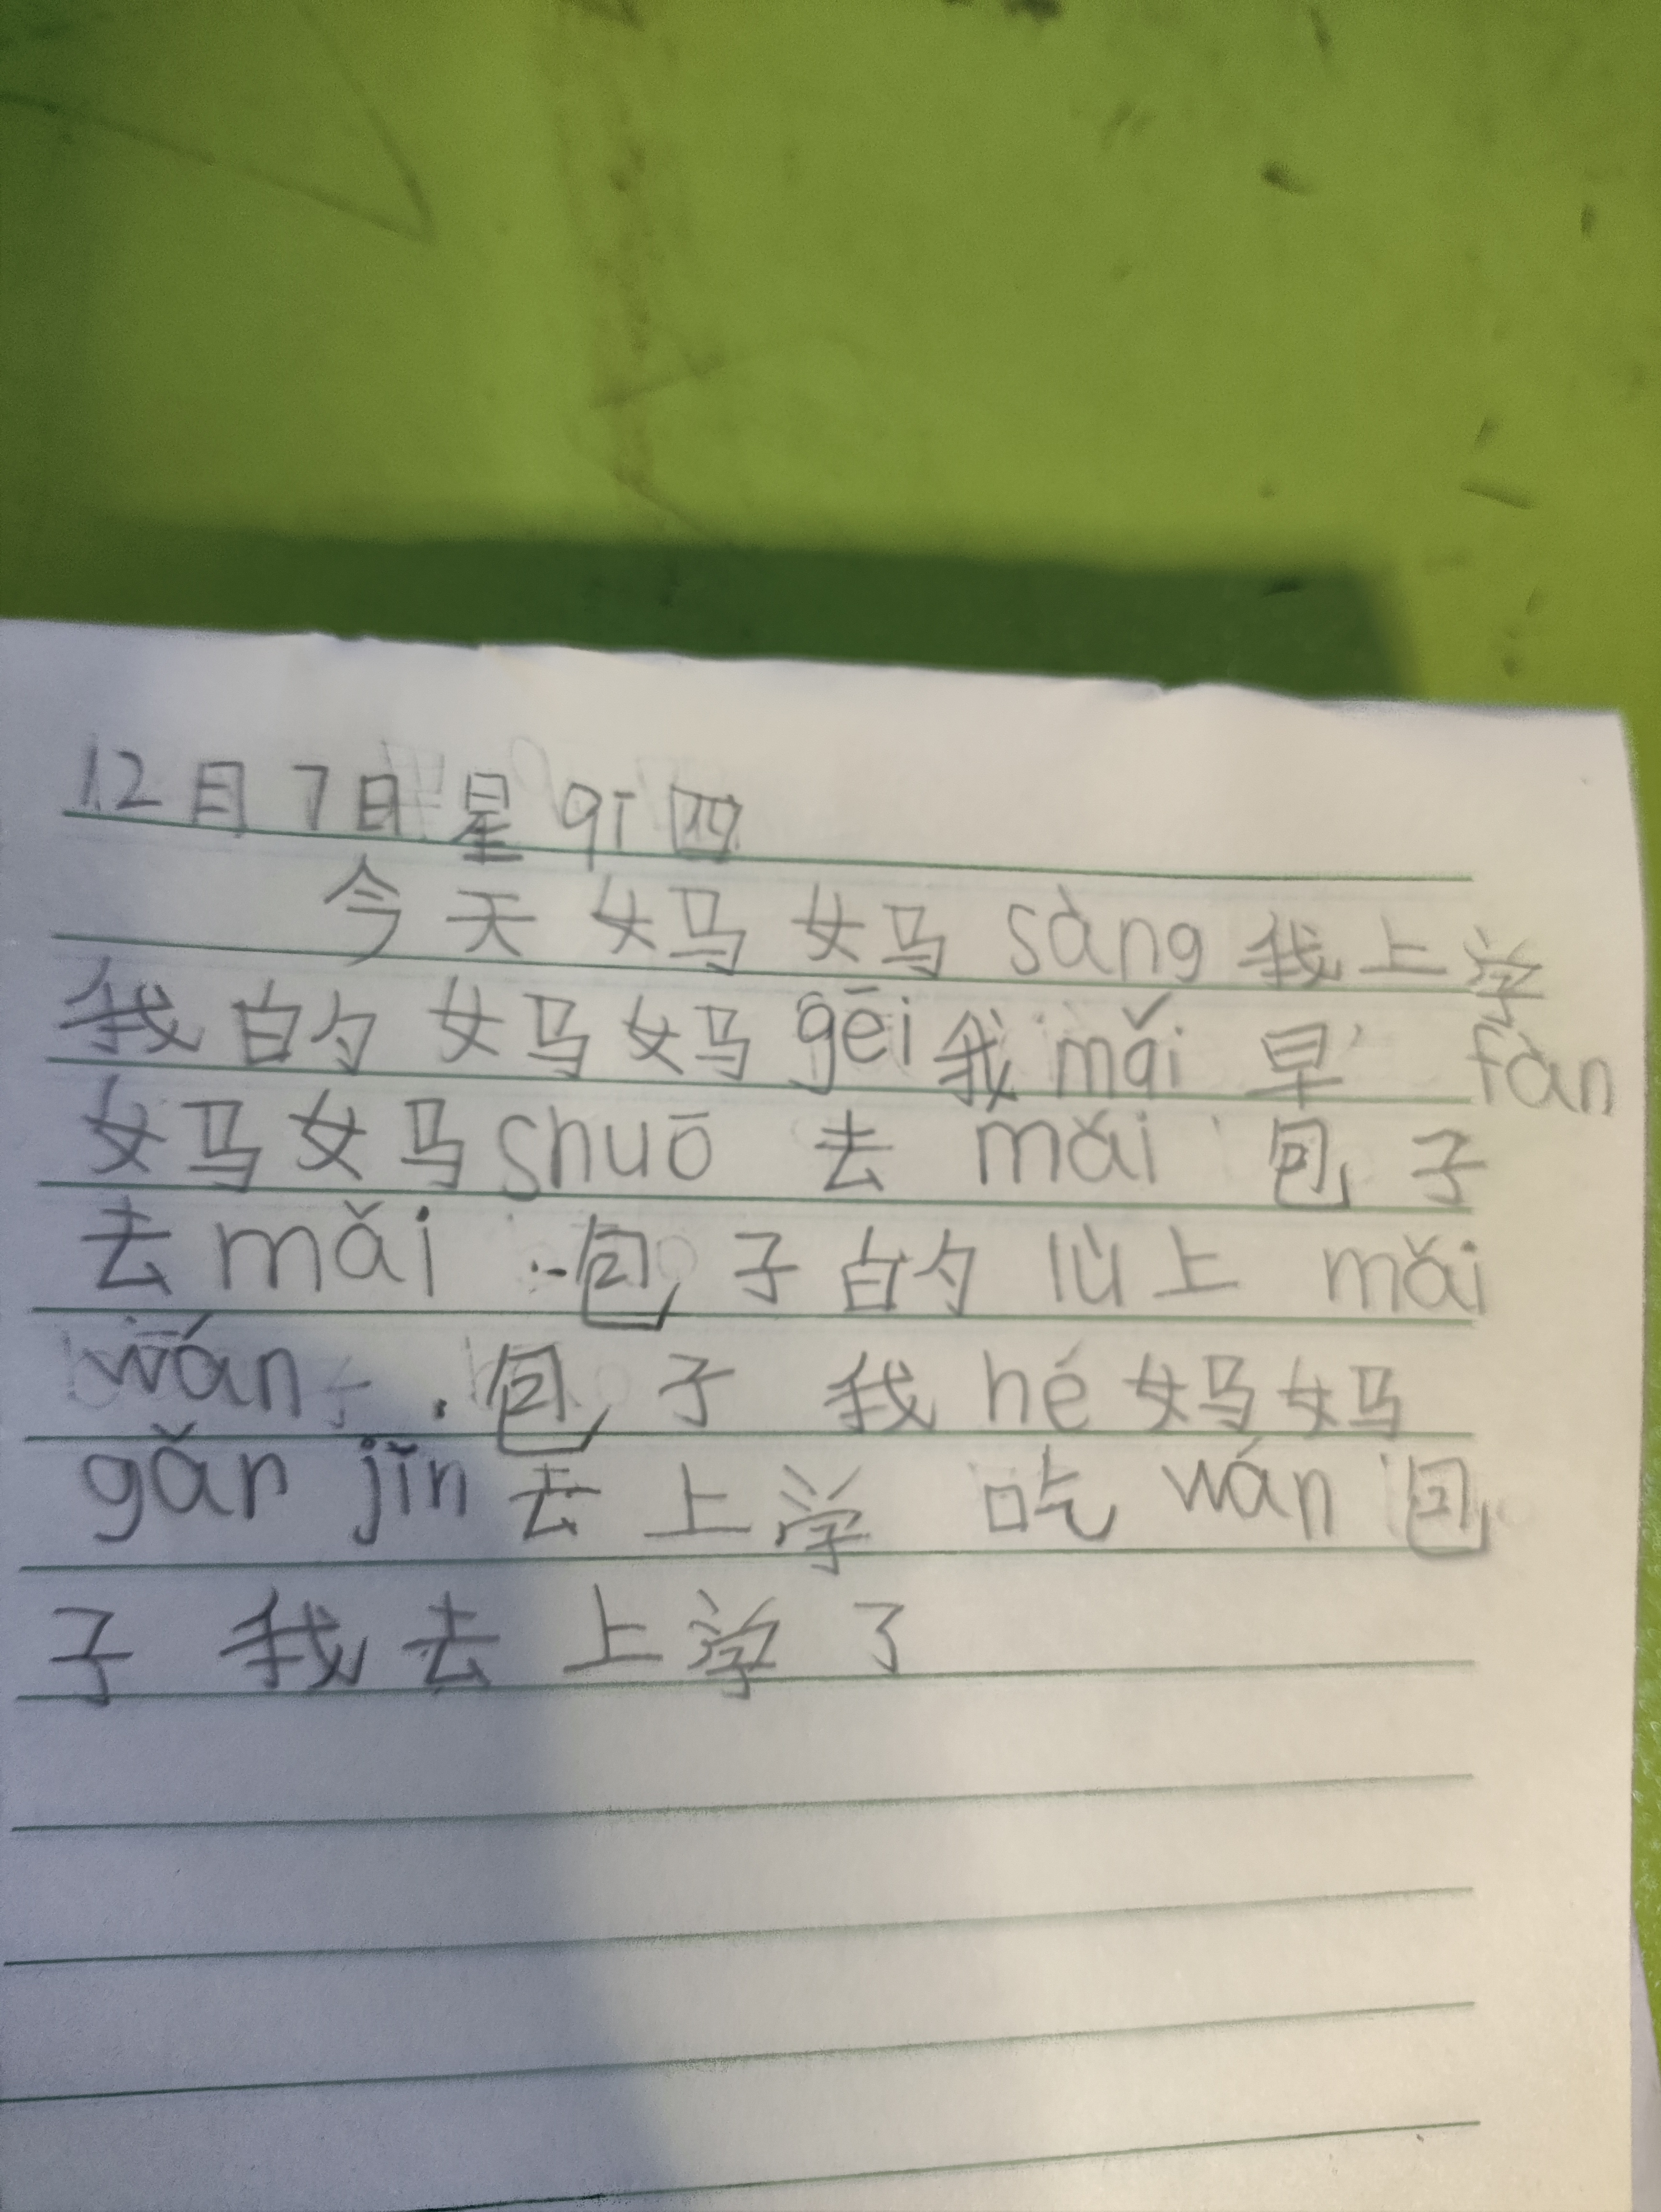 12月7日星qī四
今天妈妈sàng我上学
我的妈妈gēi我mǎi早fàn
妈妈shuō去mǎi包子
去mǎi包子的lù上mǎi
wán包子我hé妈妈
gǎn jǐn去上学吃wán包
子我去上学了